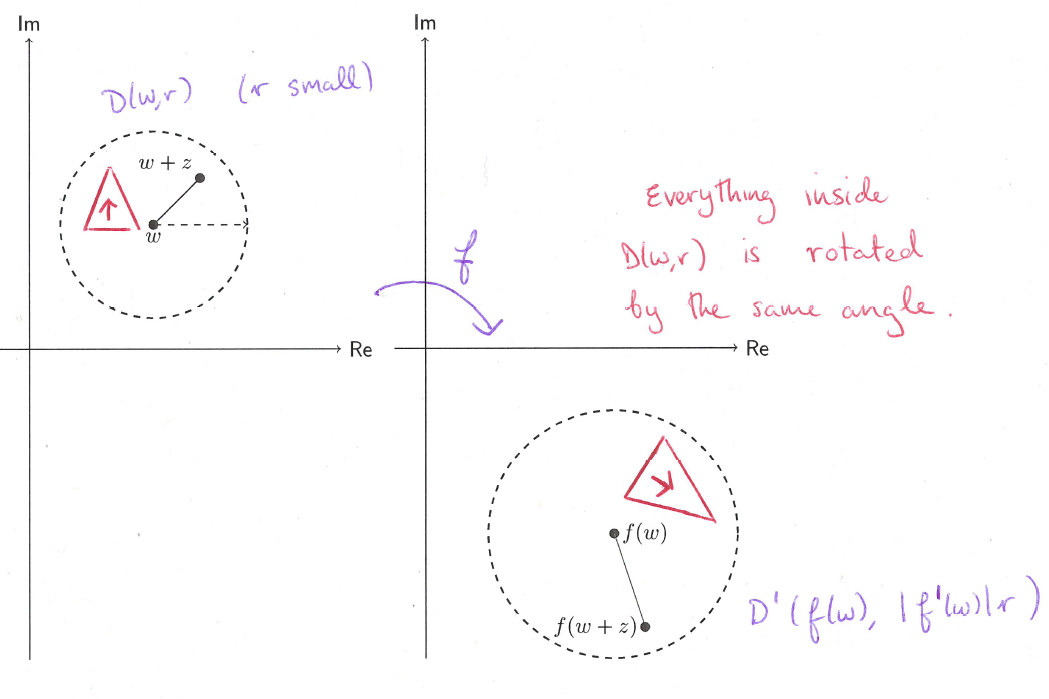 Im
D(w,r) (r small)
w + z
w
Re
Im
f
Everything inside
D(w,r) is rotated
by the same angle.
Re
f(w)
f(w + z)
D'(f(w), |f'(w)|r)